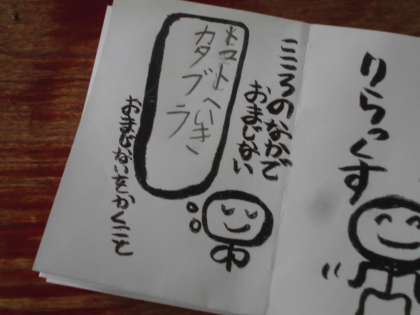 りらっくす
こころのなかで
おまじない
トマトへいき、
カタブラ
おまじないをかくこと